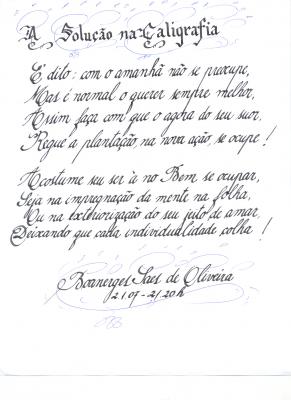 A Solução na Caligrafia
É dito: com o amanhã não se preocupe,
Mas é normal o querer sempre melhor,
Assim faça com que o agora do seu suor,
Regue a plantação, na nova ação, se ocupe!
Acostume seu ser a no Bem se ocupar,
Seja na impregnação da mente na folha,
Ou na exteriorização do seu jeito de amar,
Deixando que cada individualidade colha!
Boanerges Saes de Oliveira
21.07-21.20h